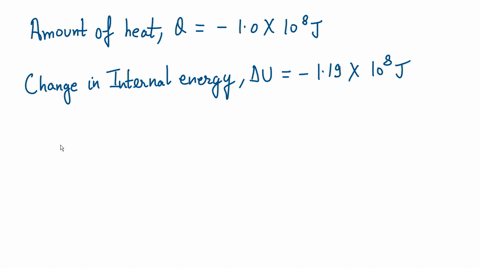 Amount of heat, Q = - 1.0 X 10⁸ J
Change in Internal energy, ΔU = - 1.19 X 10⁸ J